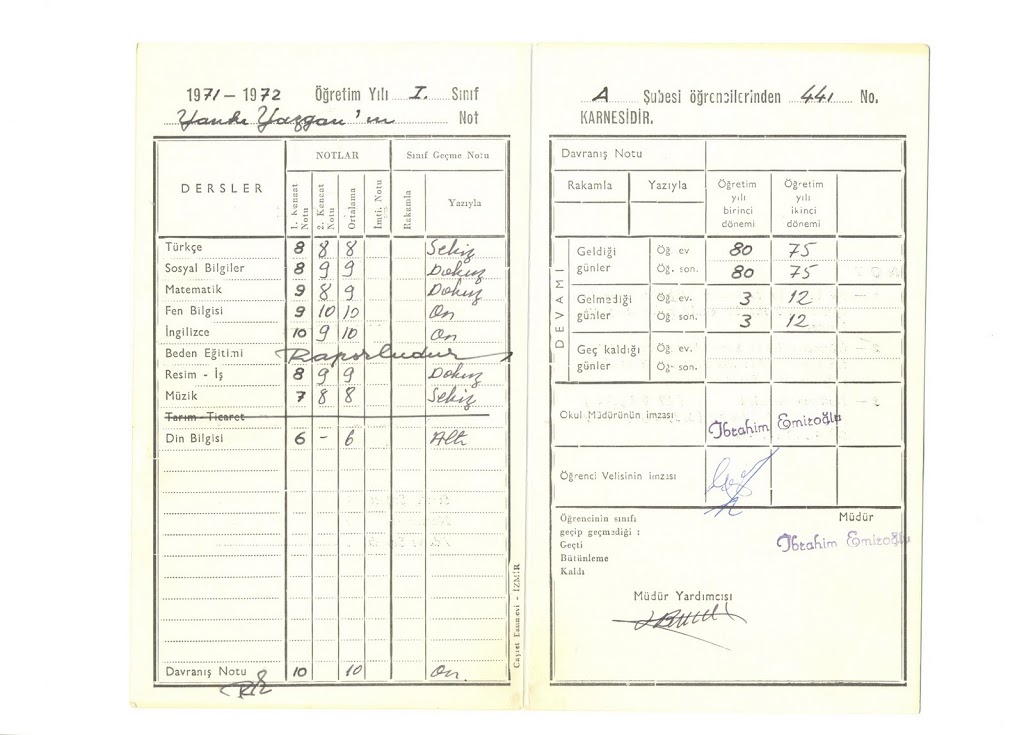 1971 — 1972 Öğretim Yılı I. Sınıf
Yankı Yazgan'ın Not
DERSLER
NOTLAR
Sınıf Geçme Notu
1. Kanaat Notu
2. Kanaat Notu
Ortalama
İmti. Notu
Rakamla
Yazıyla
Türkçe 8 8 8 Sekiz
Sosyal Bilgiler 8 9 9 Dokuz
Matematik 9 8 9 Dokuz
Fen Bilgisi 9 10 10 On
İngilizce 10 9 10 On
Beden Eğitimi Raporludur
Resim - İş 8 9 9 Dokuz
Müzik 7 8 8 Sekiz
Tarım - Ticaret
Din Bilgisi 6 - 6 Altı
Davranış Notu 10 10 On.
İZMİR
A Şubesi öğrencilerinden 441 No.
KARNESİDİR.
Davranış Notu
Rakamla Yazıyla
Öğretim yılı birinci dönemi
Öğretim yılı ikinci dönemi
DEVAMI
Geldiği günler
Öğ. ev 80 75
Öğ. son. 80 75
Gelmediği günler
Öğ. ev. 3 12
Öğ. son. 3 12
Geç kaldığı günler
Öğ. ev.
Öğ. son.
Okul Müdürünün imzası
İbrahim Emiroğlu
Öğrenci Velisinin imzası
Öğrencinin sınıfı
geçip geçmediği :
Geçti
Bütünleme
Kaldı
Müdür
İbrahim Emiroğlu
Müdür Yardımcısı